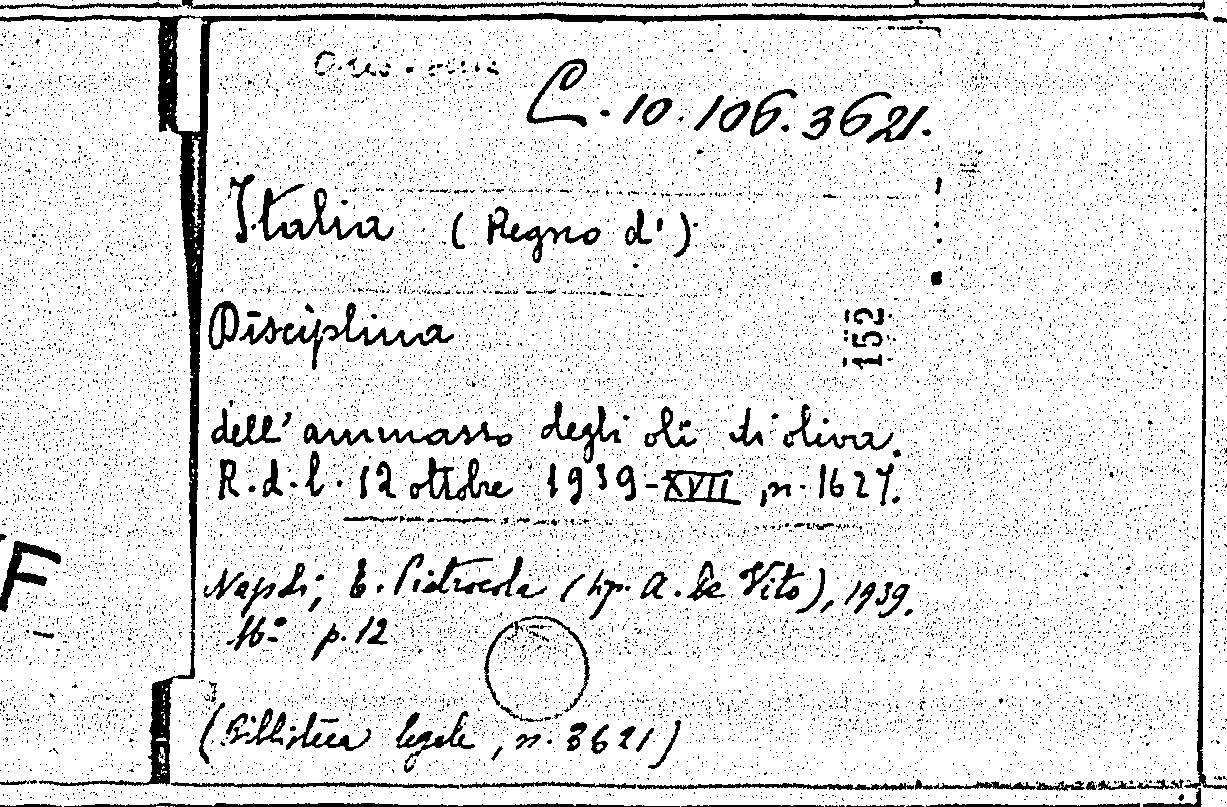 C.10.106.3621.
Italia (Regno d')
Disciplina
152
dell'ammasso degli oli di oliva.
R.d.l. 12 ottobre 1939-XVII, n. 1627.
Napoli; E. Pietrocola (tip. A. De Vito), 1939.
16º p.12
(Biblioteca legale, n. 3621)